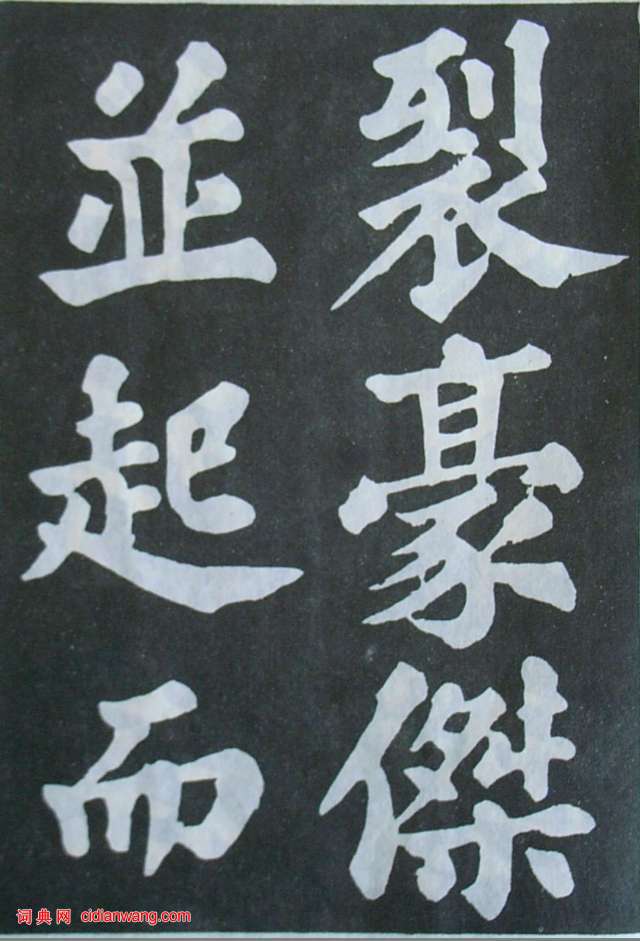 裂豪傑
並起而
词典网 cidianwang.com